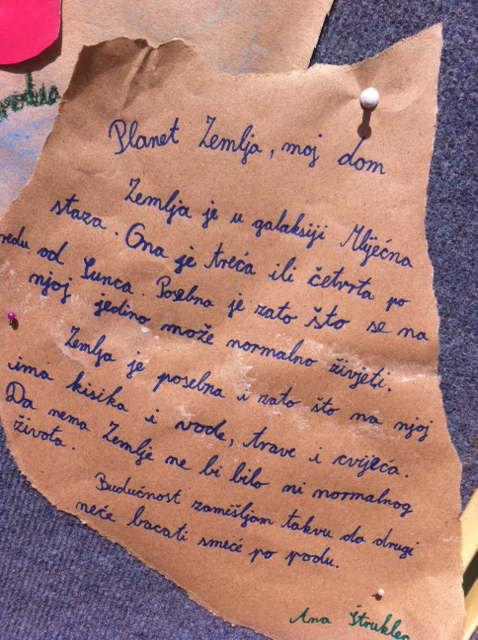 Planet Zemlja, moj dom
Zemlja je u galaksiji Mliječna
staza. Ona je treća ili četvrta po
redu od Sunca. Posebna je zato što se na
njoj jedino može normalno živjeti.
Zemlja je posebna i zato što na njoj
ima kisika i vode, trave i cvijeća.
Da nema Zemlje ne bi bilo ni normalnog
života.
Budućnost zamišljam takvu da drugi
neće bacati smeće po podu.
Ana